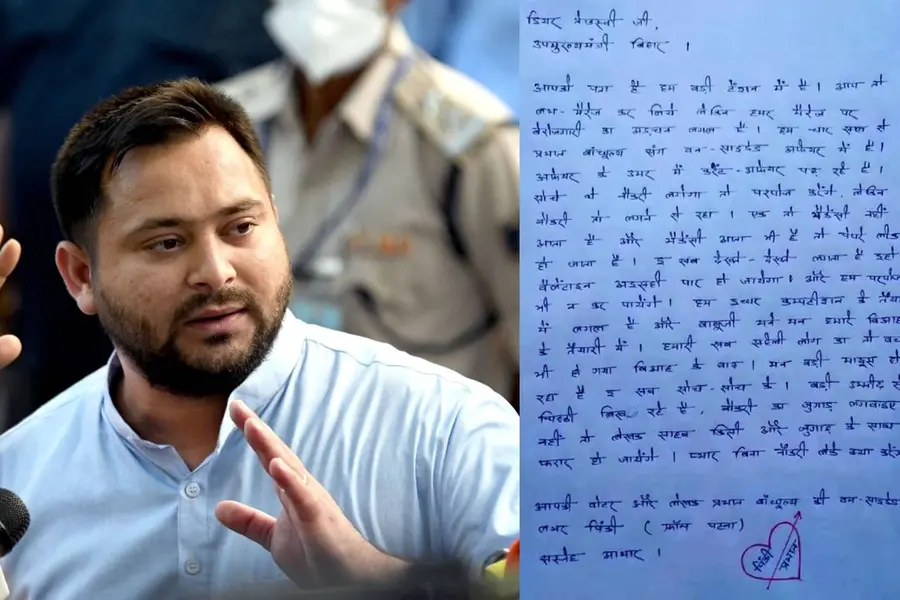 डियर तेजस्वी जी,
उपमुख्यमंत्री बिहार ।
आपको पता है हम बड़ी टेंशन में है । आप तो
लभ-मैरेज कर लिये लेकिन हमर मैरेज पर
बेरोजगारी का अड़चन लगल है । हम चार साल से
प्रभात बांधुल्य संग वन-साइडेड अफेयर में है ।
अफेयर के उमर में करेंट-अफेयर पढ़ रहे है ।
सोचे थे नौकरी लगेगा तो परपोज करेंगे, लेकिन
नौकरी तो लगने से रहा । एक तो भैकेंसी नहीं
आता है और भैकेंसी आता भी है तो पेपरे लीक
हो जाता है । इ सब देखते-देखते लगता है इहो
वैलेंटाइन अइसही पार हो जायेगा । और हम परपोज
भी न कर पायेंगे । हम इधर कम्पटीशन के तैयारी
में लगल है और बाबूजी मने मन हमारे बिआह
के तैयारी में । हमारी सब सहेली लोग का तो बच्चा
भी हो गया बिआह के बाद । मन बड़ी मायूस हो
रहा है इ सब सोच-सोच के । बड़ी उम्मीद से
चिट्ठी लिख रहे है, नौकरी का जुगाड़ लगवाइए
नहीं तो लेखक साहब किसी और जुगाड़ के साथ
फरार हो जायेंगे । प्यार बिना नौकरी कोई क्या करे
आपकी वोटर और लेखक प्रभात बांधुल्य की वन-साइडेड
लभर पिंकी ( फ्रॉम पटना )
सस्नेह आभार ।
पिंकी
प्रभात